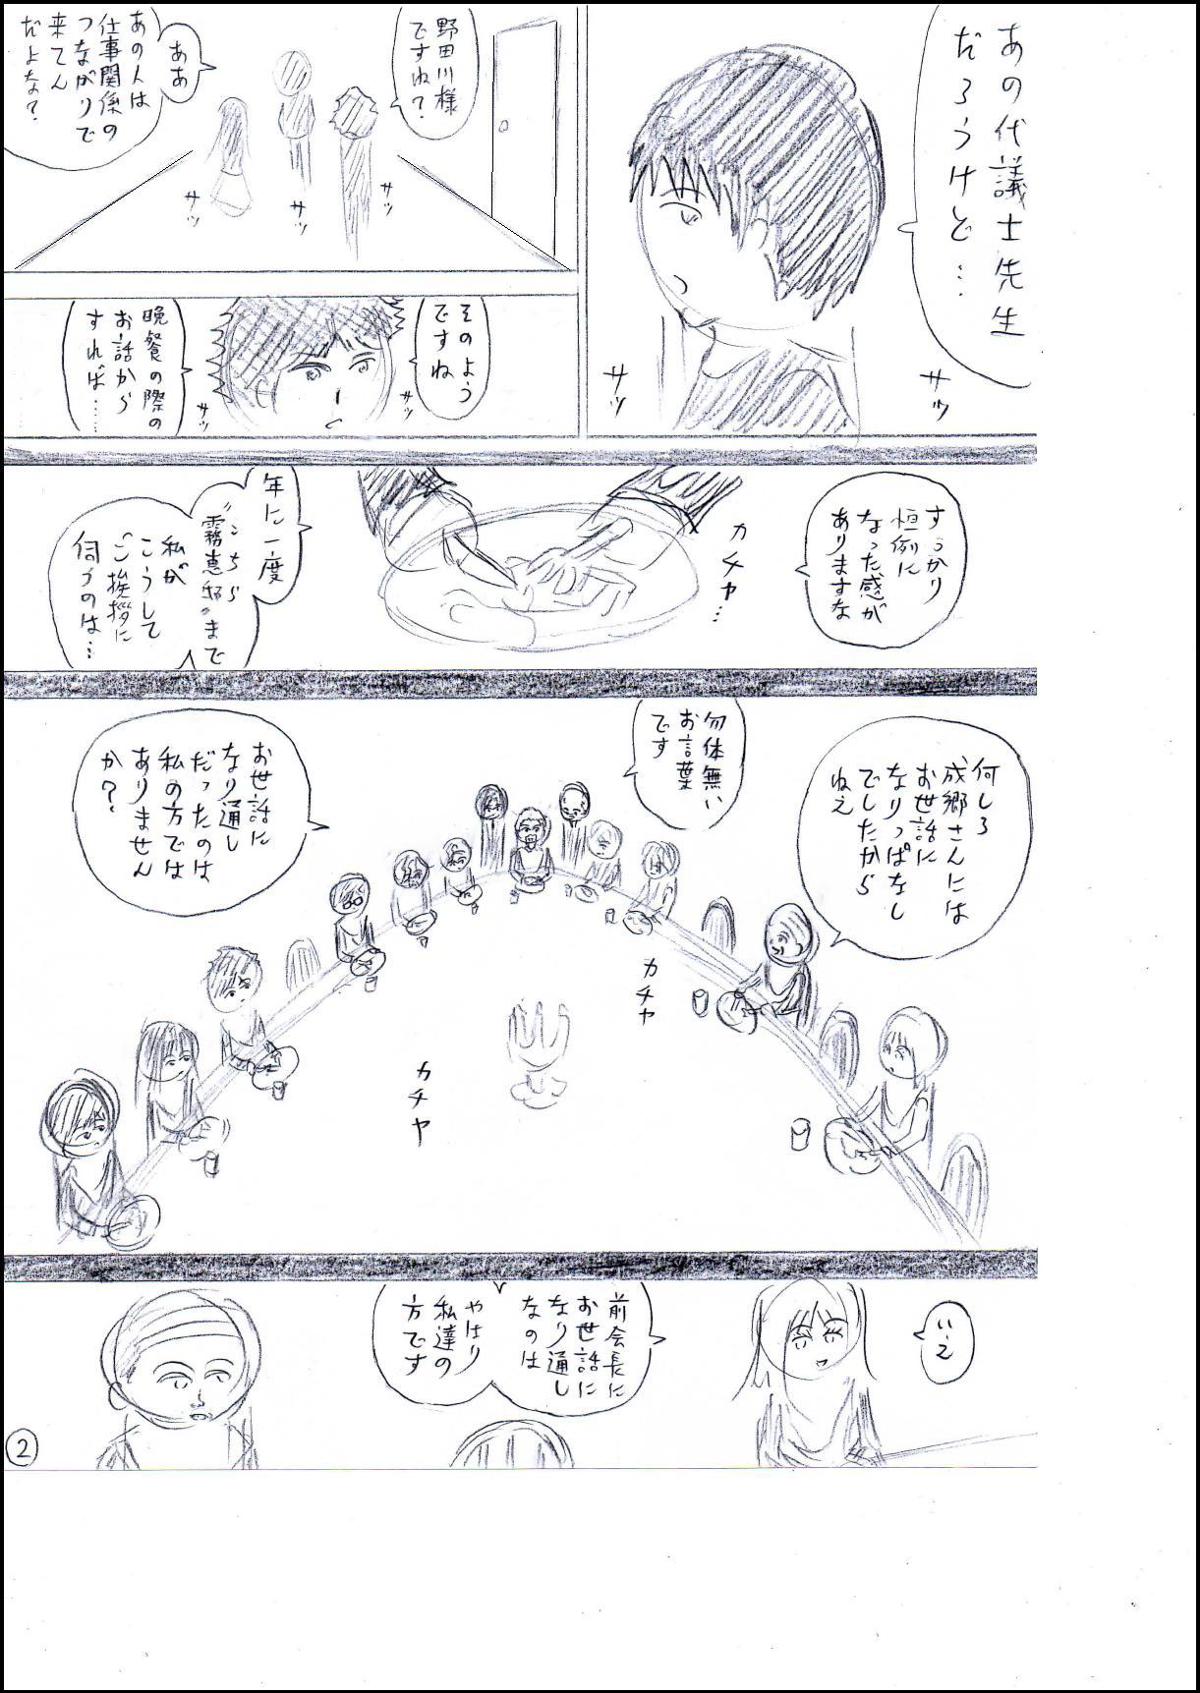 あの代議士先生
だろうけど…
サッ
サッ
野田川様
ですね？
ああ
あの人は
仕事関係の
つながりで
来てん
だよな？
サッ
サッ
サッ
そのよう
ですね
晩餐の際の
お話から
すれば……
サッ
サッ
すっかり
恒例に
なった感が
ありますな
カチャ…
年に一度
〝こちら
霧恵邸〟まで
私が
こうして
ご挨拶に
伺うのは…
何しろ
成郷さんには
お世話に
なりっぱなし
でしたから
ねえ
勿体無い
お言葉
です
お世話に
なり通し
だったのは
私の方では
ありません
か？
カチャ
カチャ
いえ
前会長に
お世話に
なり通し
なのは
やはり
私達の
方です
2